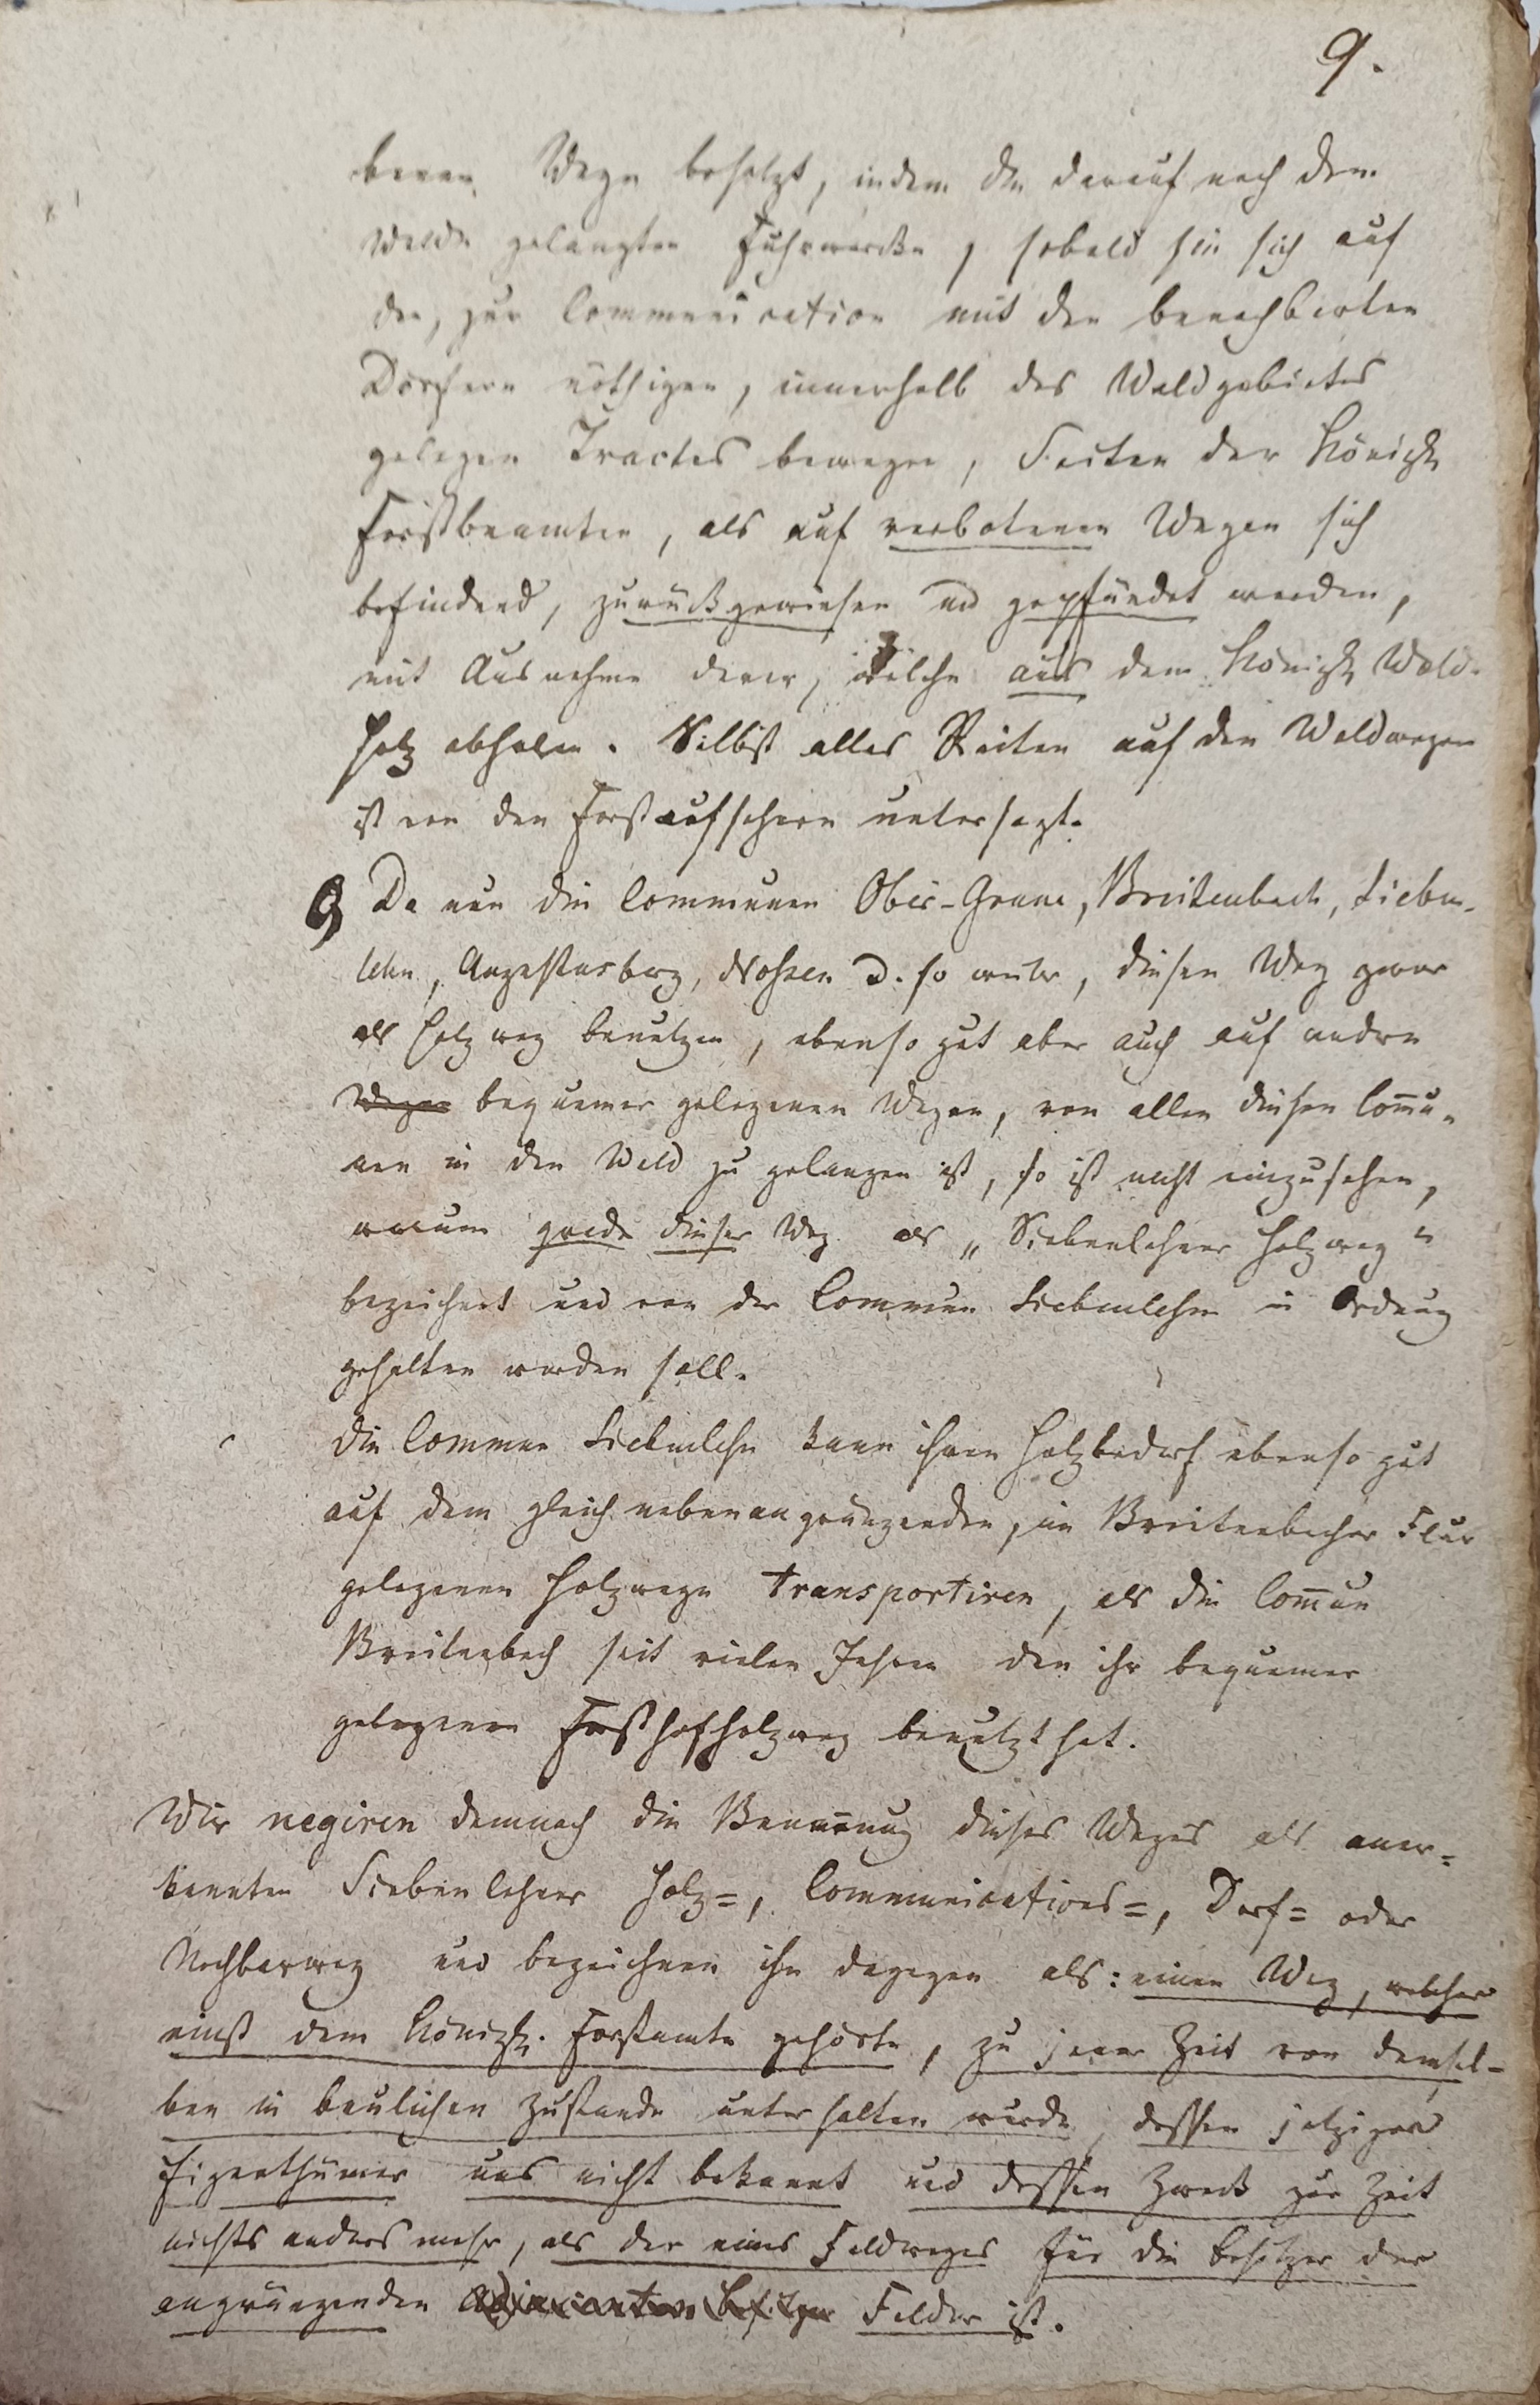 9.
baren Wege besolgt, indem die darauf nach dem
Walde gelangten Fuhrwercke, sobald sie sich auf
den, zur Communication mit den benachbarten
Dörfern nöthigen, innerhalb des Waldgebietes
gelegen Tractes bewegen, Seiten der Königl.
Forstbeamten, als auf verbotenen Wegen sich
befindend, zurückgewiesen und gepfändet werden,
mit Ausnahme derer, welche aus dem Königl. Wald
Holz abholen. Selbst alles Reiten auf den Waldwegen
ist von den Forstaufsehern untersagt.
9, Da nun die Communen Ober-Gruna, Breitenbach, Sieben-
lehn, Augustusberg, Nossen u. so weiter, diesen Weg zwar
als Holzweg benutzen, ebenso gut aber auch auf andren
Wegen bequemer gelegenen Wegen, von allen diesen Com̄u-
nen in den Wald zu gelangen ist, so ist nicht einzusehen,
warum grade dieser Weg als „Siebenlehner Holzweg“
bezeichnet und von der Commun Siebenlehn in Ordnung
gehalten werden soll.
Die Commun Siebenlehn kann ihren Holzbedarf ebenso gut
auf dem gleich nebenangränzenden, in Breitenbacher Flur
gelegenen Holzwege transportiren, als die Com̄un
Breitenbach seit vielen Jahren den ihr bequemer
gelegenen Forsthofholzweg benutzt hat.
Wir negiren demnach die Benennung dieses Weges als aner=
kannten Siebenlehner Holz=, Communications=, Dorf= oder
Nachbarweg und bezeichnen ihn dagegen als: einen Weg, welcher
einst dem Königl. Forstamte gehörte, zu jener Zeit von demsel-
ben in baulichen Zustande unterhalten wurde, dessen jetziger
Eigenthümer uns nicht bekannt und dessen Zweck zur Zeit
nichts anders mehr, als der eines Feldweges für die Besitzer der
angränzenden Adjacenten Besitzer Felder ist.